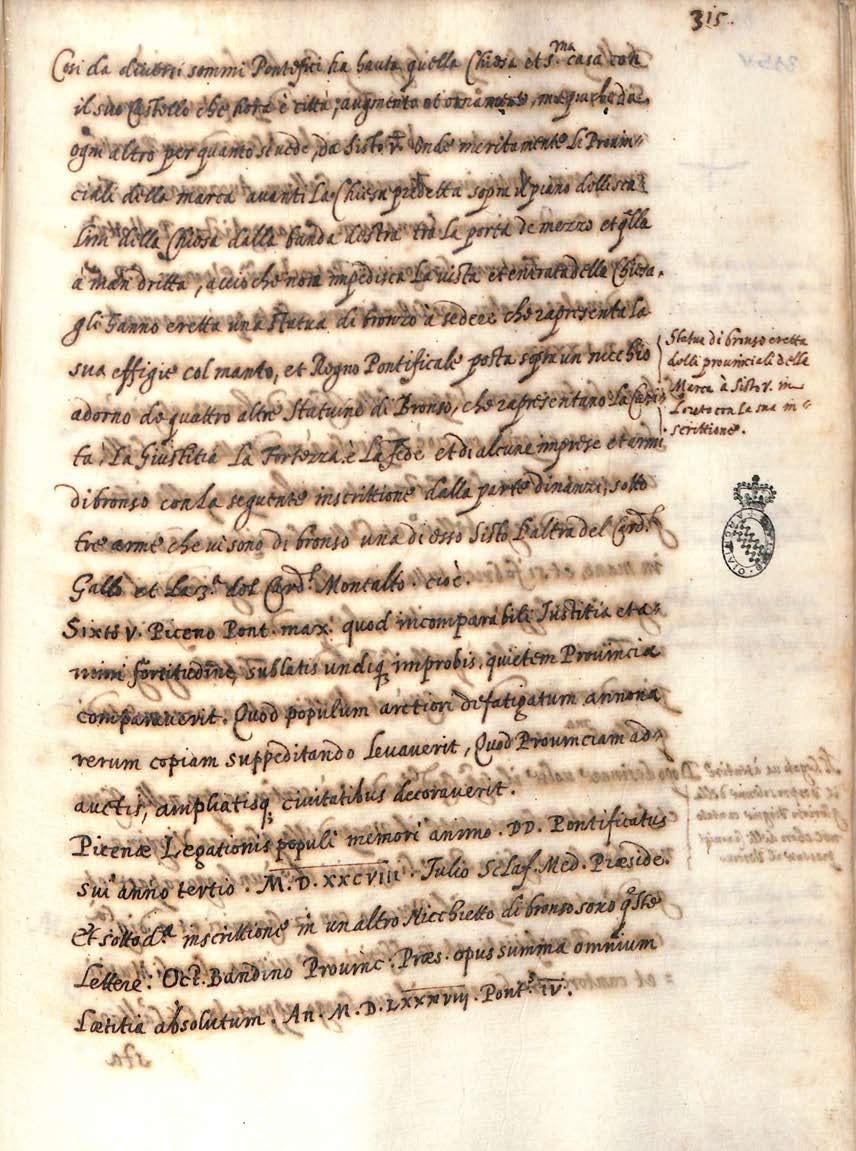 315.
Cosi da diversi sommi Pontefici ha hauto quella Chiesa et s.ma casa con
il suo Castello che hora è città, augmento et ornamento, ma più che da
ogni altro per quanto si vede, da Sisto V. Onde meritamente li Provin=
ciali della marca avanti La Chiesa predetta sopra il piano delli sca=
lini della Chiesa dalla banda destra trà La porta de mezzo et qlla
à man dritta, acciò che non impedisca La vista et entrata della Chiesa,
gli hanno eretta una statua di bronzo à sedere che rapresenta la
sua effigie col manto, et Regno Pontificale posta sopra un nicchio
adorno de quattro altre Statuine di Bronso, che rapresentano La Cari=
ta, La Giustitia La Fortezza, è La Fede et di alcune imprese et armi
di bronso con la seguente inscrittione dalla parte dinanzi, sotto
tre arme che vi sono di bronso una di esso Sisto L'altra del Card.l
Gallo et La 3.a del Card.l Montalto. cioè.
Sixto V. Piceno Pont. max. quod incomparabili Iustitia et a=
nimi fortitudine, sublatis undiq. improbis, quietem Provincia
comparaverit. Quod populum arctiori defatigatum annona
rerum copiam suppeditando Levaverit, Quod Provinciam ad=
auctis, ampliatisq. civitatibus decoraverit.
Picenæ Legationis populi memori animo. DD. Pontificatus
sui anno tertio. M.D.XXCVIII. Julio Sclaf. Med. Præside.
Et sotto d.a inscrittione in un altro Nicchietto di bronso sono qste
Lettere: Oct. Bandino Provinc. Præs. opus summa omnium
Lætitia absolutum. An. M.D.LXXXVIII. Pont.s IV.
Statua di bronso eretta
delli provinciali della
Marca à Sisto V. in
Loreto con la sua in=
scrittione.